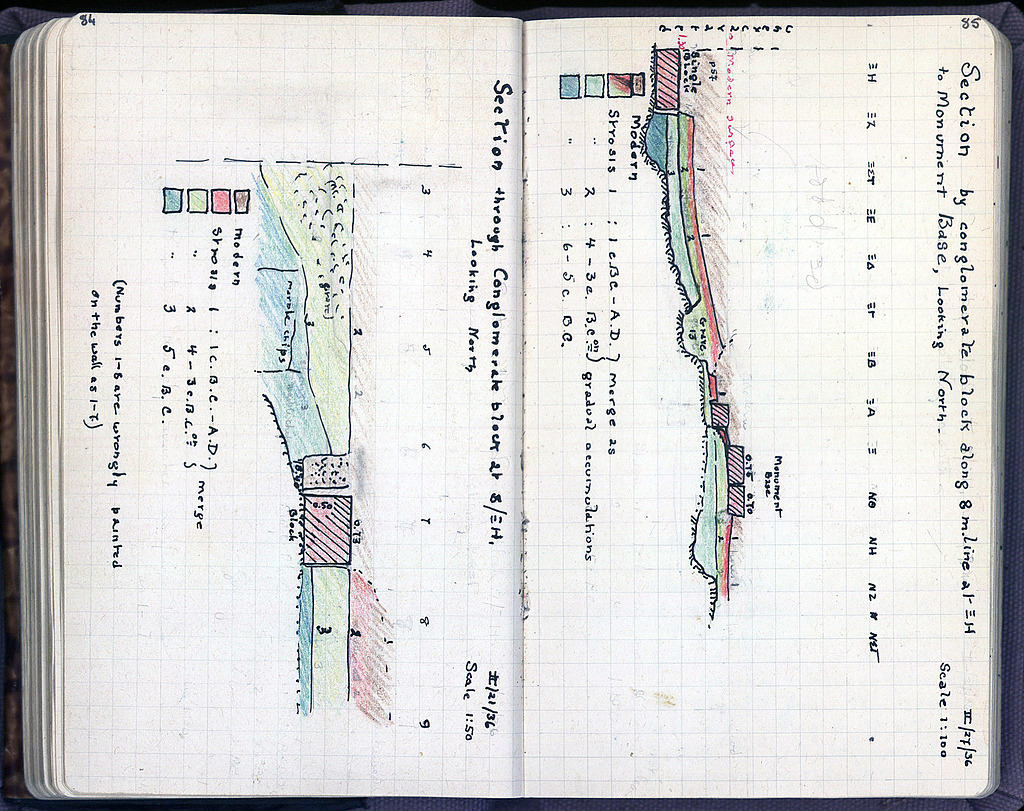 84
Section through Conglomerate block at 8/ΞH,
Looking North
II/21/36
Scale 1:50
3
4
5
6
7
8
9
(grave)
marble chips
2
2
3
3
0.73
0.50
Block
2
3
modern
Strosis 1 : 1 c. B.C. - A.D. }
" 2 4 - 3 c. B.C. on } merge
" 3 5 c. B.C.
(Numbers 1-6 are wrongly painted
on the wall as 1-7)
85
Section by conglomerate block along 8 m. line at ΞH
to Monument Base, Looking North.
II/27/36
Scale 1:100
ΞH
ΞZ
ΞE
ΞΔ
ΞΓ
ΞB
ΞA
Ξ
NΘ
NH
NZ
Modern surface
Single
Block
1
2
3
1
2
Grave
13
Monument
Base
0.75
0.70
1
2
Modern
Strosis 1 : 1 c. B.C. - A.D. } Merge as
" 2 : 4 - 3 c. B.C. on } gradual accumulations
" 3 : 6 - 5 c. B.C.